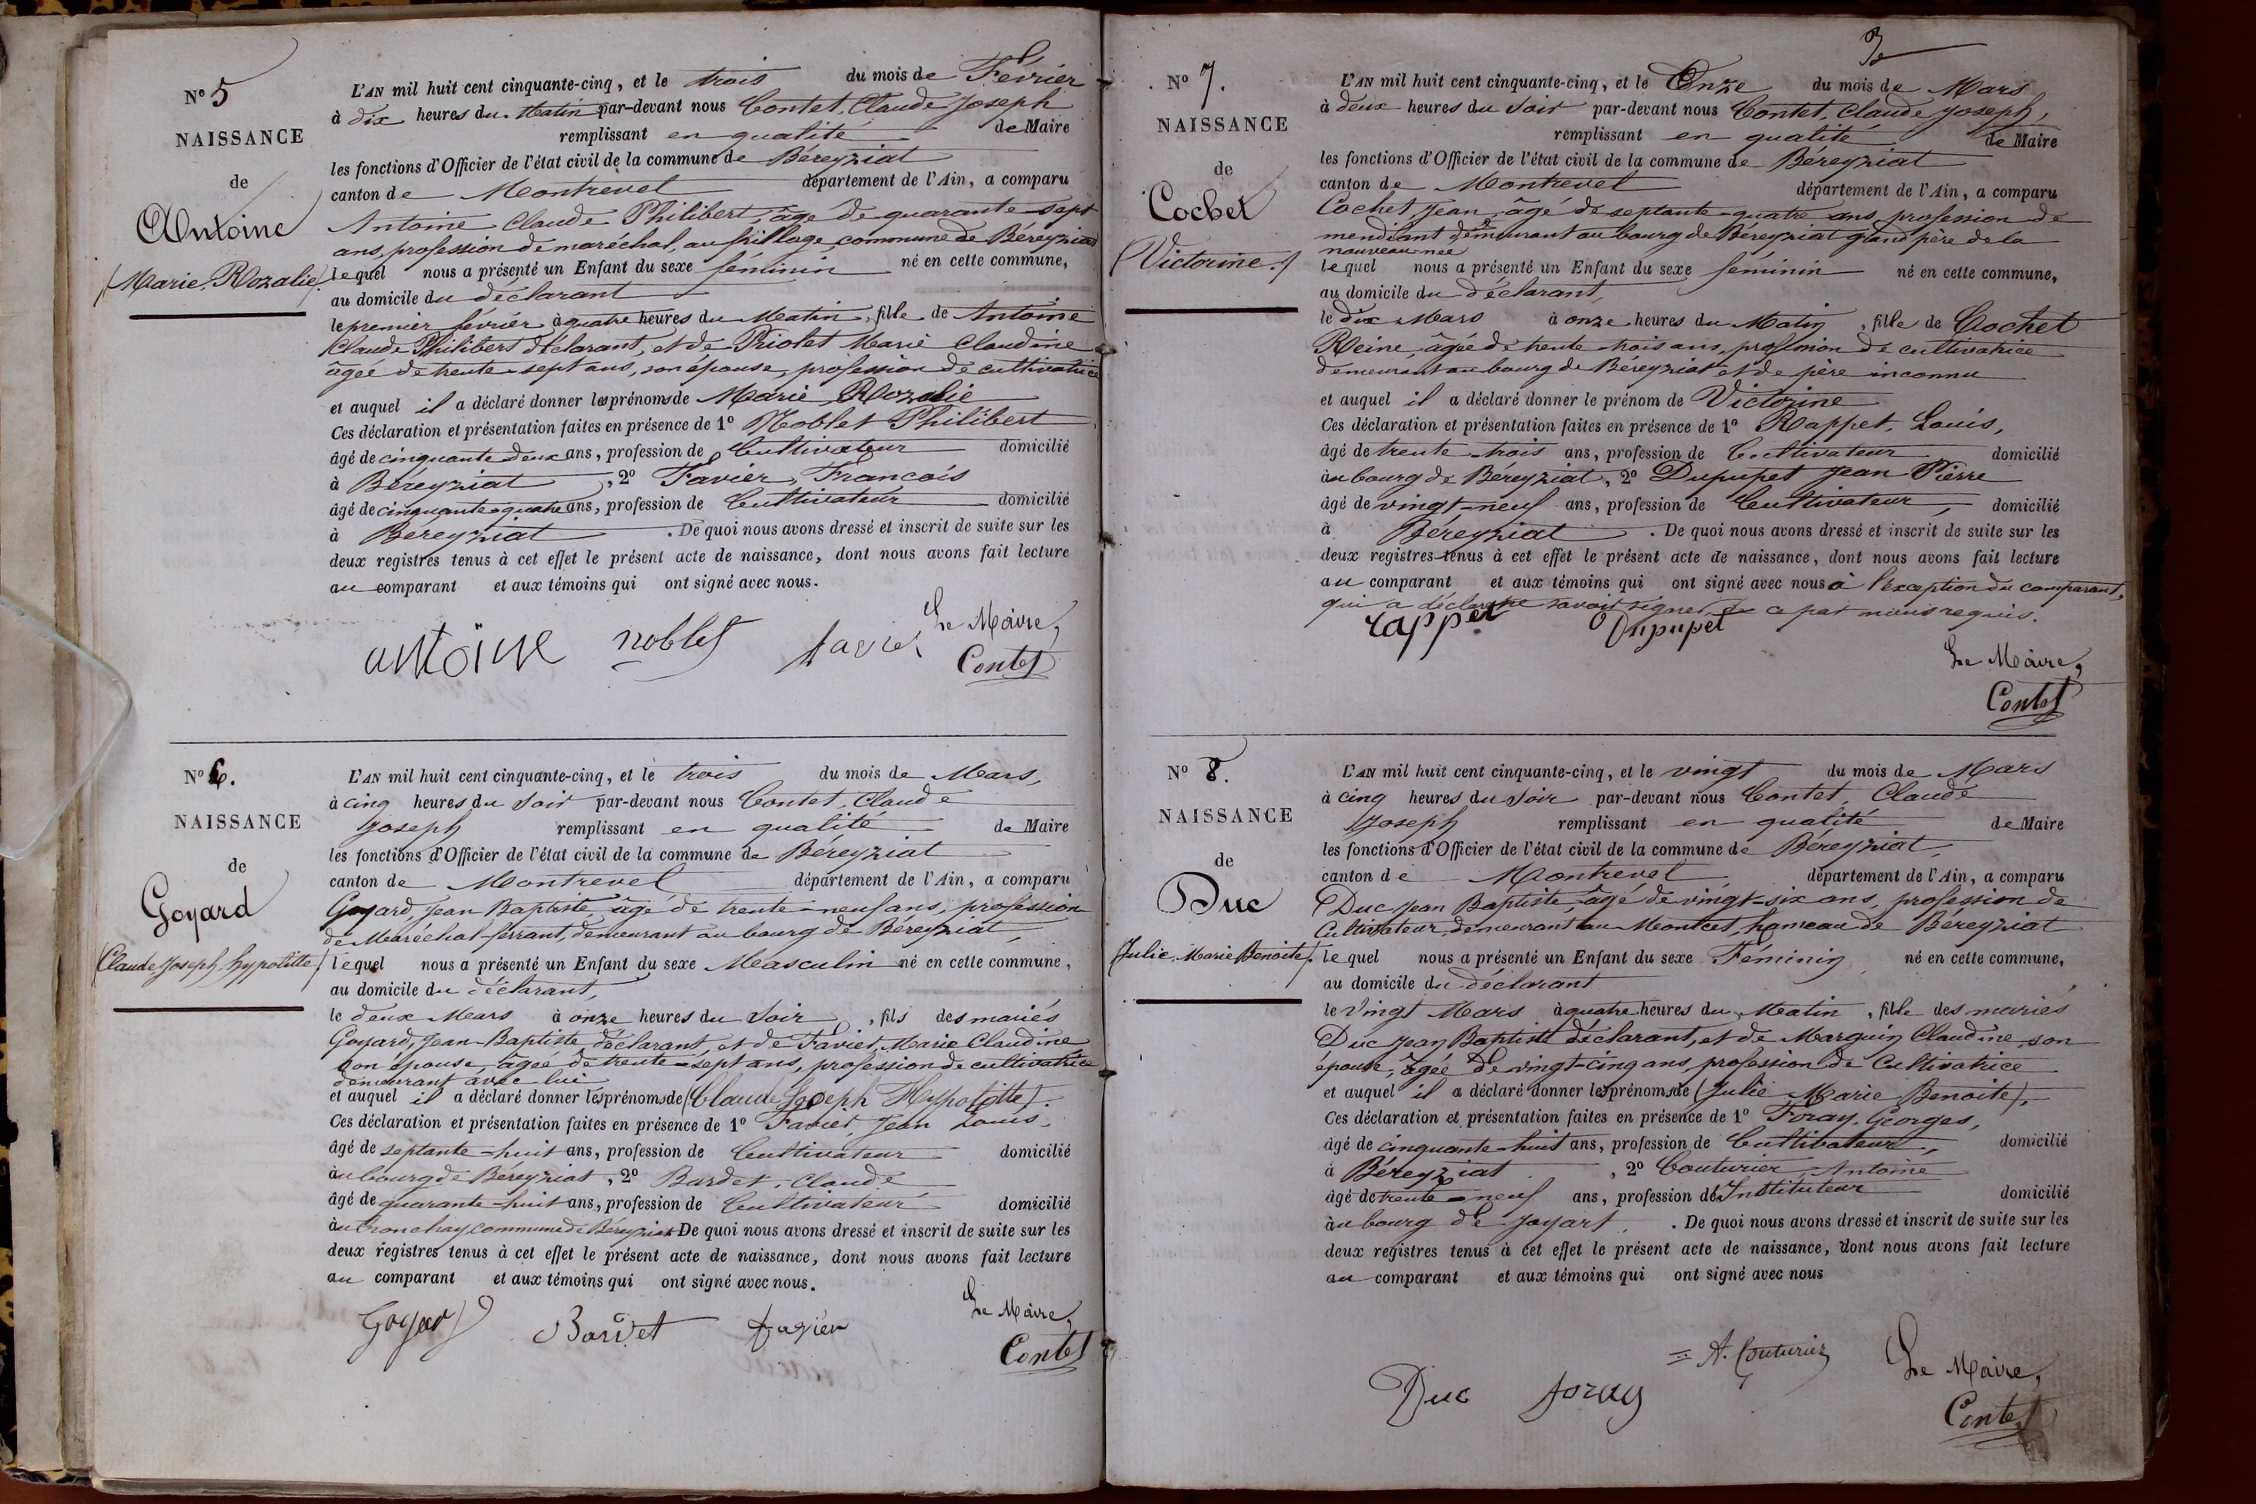 Nº 5
NAISSANCE
de
Antoine
(Marie Rozalie)
L'AN mil huit cent cinquante-cinq, et le trois du mois de Février
à dix heures du Matin par-devant nous Contet, Claude Joseph
remplissant en qualité de Maire
les fonctions d'Officier de l'état civil de la commune de Béreyziat
canton de Montrevel département de l'Ain, a comparu
Antoine Claude Philibert, âgé de quarante-sept
ans, profession de maréchal, au village commune de Béreyziat
lequel nous a présenté un Enfant du sexe féminin né en cette commune,
au domicile du déclarant
le premier février à quatre heures du Matin, fille de Antoine
Claude Philibert déclarant, et de Priolet Marie Claudine
âgée de trente-sept ans, son épouse, profession de cultivatrice
et auquel il a déclaré donner les prénoms de Marie Rozalie
Ces déclaration et présentation faites en présence de 1º Noblet Philibert
âgé de cinquante deux ans, profession de Cultivateur domicilié
à Béreyziat, 2º Favier, François
âgé de cinquante-quatre ans, profession de Cultivateur domicilié
à Béreyziat. De quoi nous avons dressé et inscrit de suite sur les
deux registres tenus à cet effet le présent acte de naissance, dont nous avons fait lecture
au comparant et aux témoins qui ont signé avec nous.
Le Maire,
antoine noblet favier Contet
Nº 6.
NAISSANCE
de
Goyard
(Claude Joseph Hypolitte)
L'AN mil huit cent cinquante-cinq, et le trois du mois de Mars,
à cinq heures du Soir par-devant nous Contet, Claude
Joseph remplissant en qualité de Maire
les fonctions d'Officier de l'état civil de la commune de Béreyziat
canton de Montrevel département de l'Ain, a comparu
Goyard, Jean Baptiste, âgé de trente-neuf ans, profession
de Maréchal-ferrant, demeurant au bourg de Béreyziat,
lequel nous a présenté un Enfant du sexe Masculin né en cette commune,
au domicile du déclarant,
le deux Mars à onze heures du Soir, fils des mariés
Goyard, Jean-Baptiste, déclarant, et de Faviet, Marie Claudine
son épouse, âgée de trente-sept ans, profession de cultivatrice
demeurant avec lui
et auquel il a déclaré donner les prénoms de (Claude Joseph Hypolitte).
Ces déclaration et présentation faites en présence de 1º Faviet, Jean Louis,
âgé de septante-huit ans, profession de Cultivateur domicilié
au bourg de Béreyziat, 2º Bardet, Claude
âgé de quarante-huit ans, profession de Cultivateur domicilié
au Tronchay commune de Béreyziat De quoi nous avons dressé et inscrit de suite sur les
deux registres tenus à cet effet le présent acte de naissance, dont nous avons fait lecture
au comparant et aux témoins qui ont signé avec nous.
Le Maire,
Goyard Bardet favier Contet
3e
Nº 7.
NAISSANCE
de
Cochet
(Victorine.)
L'AN mil huit cent cinquante-cinq, et le Onze du mois de Mars
à deux heures du Soir par-devant nous Contet, Claude Joseph,
remplissant en qualité de Maire
les fonctions d'Officier de l'état civil de la commune de Béreyziat
canton de Montrevel département de l'Ain, a comparu
Cochet, Jean, âgé de septante-quatre ans, profession de
mendiant demeurant au bourg de Béreyziat grand père de la
nouveau née
lequel nous a présenté un Enfant du sexe féminin né en cette commune,
au domicile du déclarant,
le dix Mars à onze heures du Matin, fille de Cochet
Reine, âgée de trente-trois ans, profession de cultivatrice
demeurant au bourg de Béreyziat et de père inconnu
et auquel il a déclaré donner le prénom de Victorine
Ces déclaration et présentation faites en présence de 1º Rappet, Louis,
âgé de trente trois ans, profession de Cultivateur domicilié
au bourg de Béreyziat, 2º Dupupet Jean Pierre
âgé de vingt-neuf ans, profession de Cultivateur, domicilié
à Béreyziat. De quoi nous avons dressé et inscrit de suite sur les
deux registres tenus à cet effet le présent acte de naissance, dont nous avons fait lecture
au comparant et aux témoins qui ont signé avec nous à l'exception du comparant,
qui a déclaré ne savoir signer de ce par nous requis.
rappet Dupupet
Le Maire,
Contet
Nº 8.
NAISSANCE
de
Duc
(Julie Marie Benoite).
L'AN mil huit cent cinquante-cinq, et le vingt du mois de Mars
à cinq heures du Soir par-devant nous Contet, Claude
Joseph remplissant en qualité de Maire
les fonctions d'Officier de l'état civil de la commune de Béreyziat,
canton de Montrevel département de l'Ain, a comparu
Duc Jean Baptiste, âgé de vingt-six ans, profession de
Cultivateur, demeurant au Montcet, hameau de Béreyziat
lequel nous a présenté un Enfant du sexe Féminin né en cette commune,
au domicile du déclarant
le Vingt Mars à quatre heures du Matin, fille des mariés
Duc Jean Baptiste déclarant, et de Marguin Claudine, son
épouse, âgée de vingt-cinq ans, profession de Cultivatrice
et auquel il a déclaré donner les prénoms de (Julie Marie Benoite).
Ces déclaration et présentation faites en présence de 1º Foray, Georges,
âgé de cinquante-huit ans, profession de Cultivateur, domicilié
à Béreyziat, 2º Couturier, Antoine
âgé de trente-neuf ans, profession d'Instituteur domicilié
au bourg de Jayart. De quoi nous avons dressé et inscrit de suite sur les
deux registres tenus à cet effet le présent acte de naissance, dont nous avons fait lecture
au comparant et aux témoins qui ont signé avec nous
A. Couturier Le Maire,
Duc foray Contet